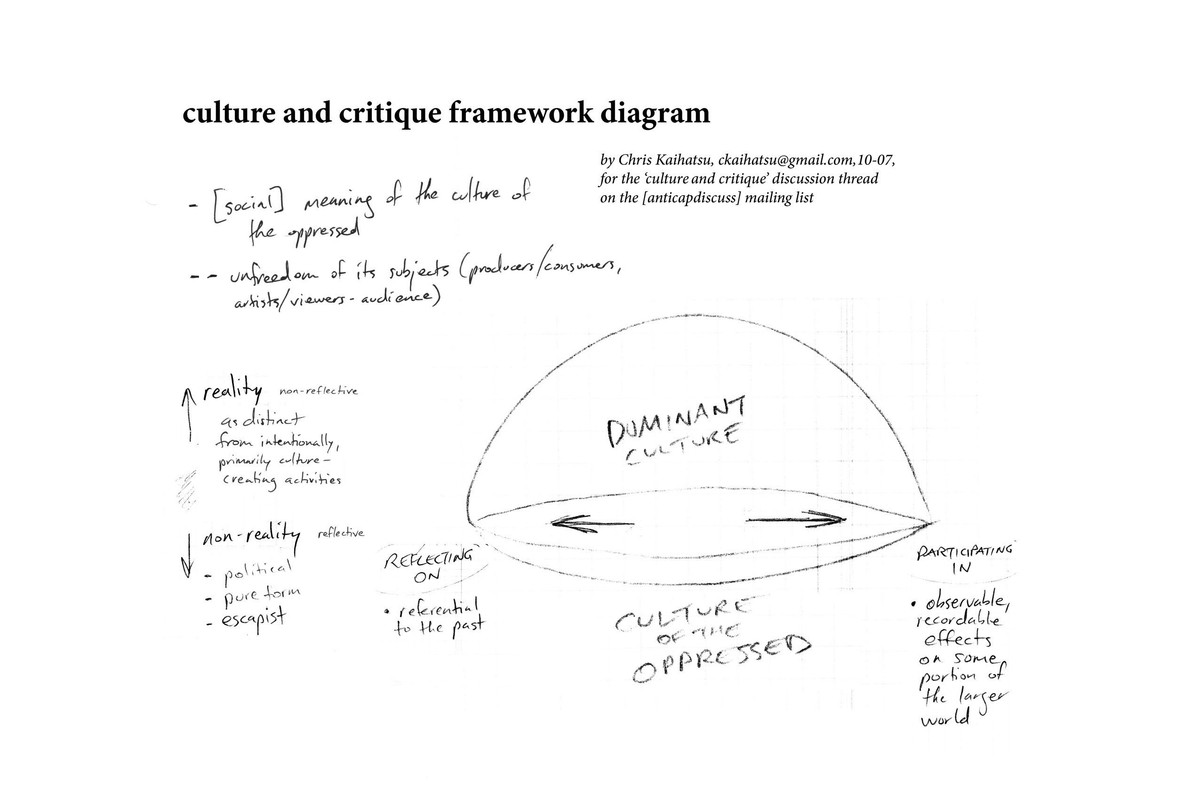 culture and critique framework diagram
by Chris Kaihatsu, ckaihatsu@gmail.com,10-07,
for the ‘culture and critique’ discussion thread
on the [anticapdiscuss] mailing list
- [social] meaning of the culture of
the oppressed
-- unfreedom of its subjects (producers/consumers,
artists/viewers-audience)
reality non-reflective
as distinct
from intentionally,
primarily culture-
creating activities
non-reality reflective
- political
- pure form
- escapist
DOMINANT
CULTURE
REFLECTING
ON
• referential
to the past
CULTURE
OF THE
OPPRESSED
PARTICIPATING
IN
• observable,
recordable
effects
on some
portion of
the larger
world